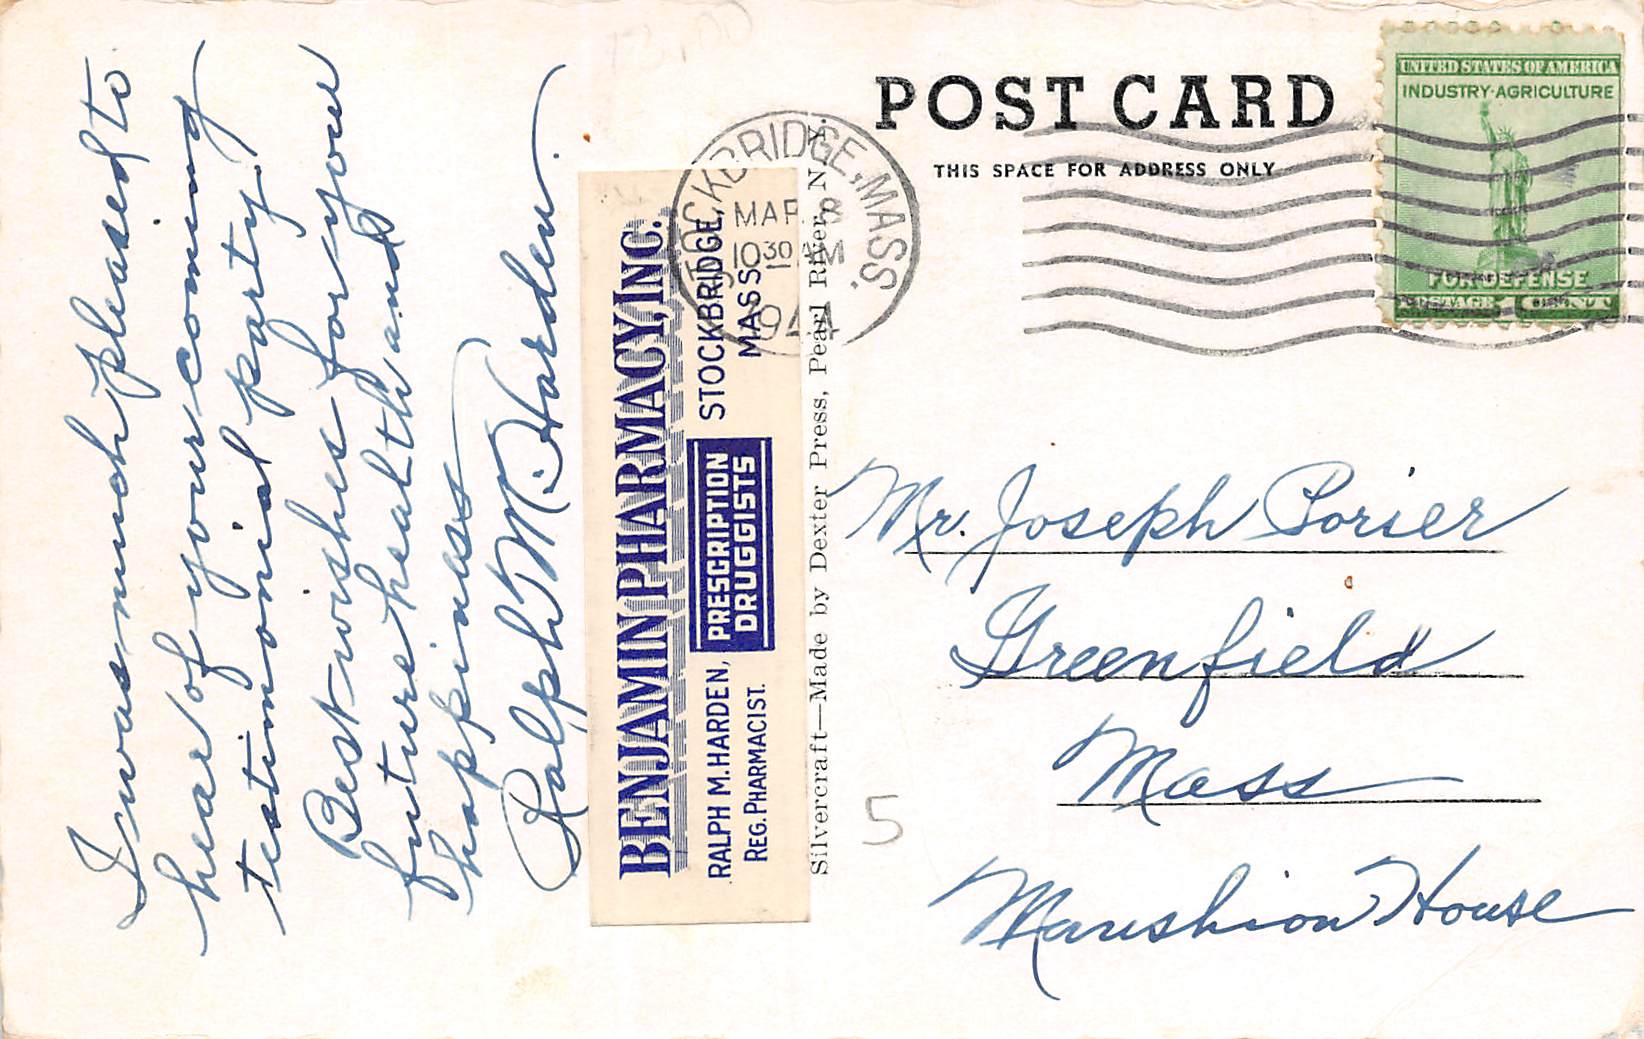 I was much pleased to
hear of your coming
testimonial party.
Best wishes for your
future health and
happiness
Ralph M. Harden.
BENJAMIN PHARMACY, INC.
RALPH M. HARDEN,
REG. PHARMACIST.
PRESCRIPTION
DRUGGISTS
STOCKBRIDGE,
MASS.
Silvercraft—Made by Dexter Press, Pearl River, N. Y.
POST CARD
THIS SPACE FOR ADDRESS ONLY
STOCKBRIDGE, MASS.
MAR 8
10 30 AM
1944
UNITED STATES OF AMERICA
INDUSTRY·AGRICULTURE
FOR DEFENSE
POSTAGE 1 CENT 1
Mr. Joseph Porier
Greenfield
Mass
Manshion House
5